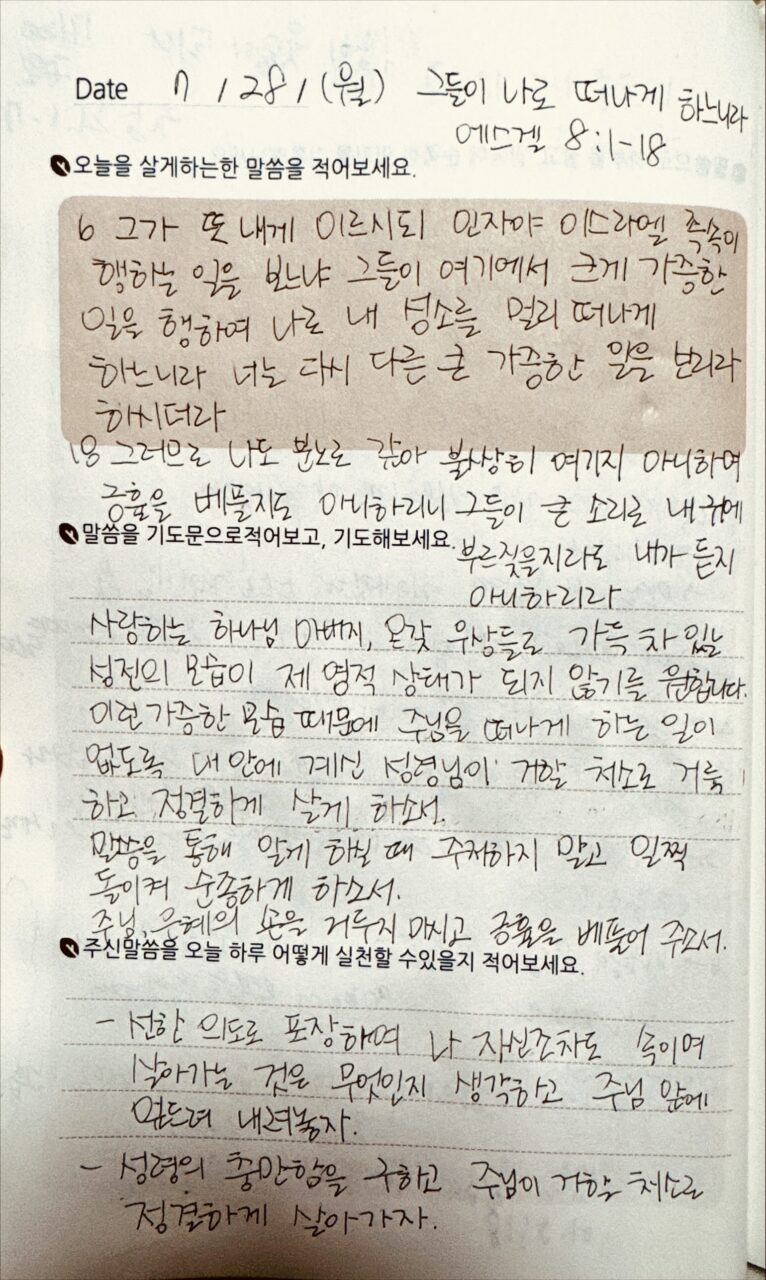 Date 7 / 28 / (월) 그들이 나로 떠나게 하느니라
에스겔 8:1-18
오늘을 살게하는한 말씀을 적어보세요.
6 그가 또 내게 이르시되 인자야 이스라엘 족속이
행하는 일을 보느냐 그들이 여기에서 크게 가증한
일을 행하여 나로 내 성소를 멀리 떠나게
하느니라 너는 다시 다른 큰 가증한 일을 보리라
하시더라
18 그러므로 나도 분노로 갚아 불쌍히 여기지 아니하며
긍휼을 베풀지도 아니하리니 그들이 큰 소리로 내 귀에
부르짖을지라도 내가 듣지
아니하리라
말씀을 기도문으로적어보고, 기도해보세요.
사랑하는 하나님 아버지, 온갖 우상들로 가득 차 있는
성전의 모습이 제 영적 상태가 되지 않기를 원합니다.
이런 가증한 모습 때문에 주님을 떠나게 하는 일이
없도록 내 안에 계신 성령님이 거할 처소로 거룩
하고 정결하게 살게 하소서.
말씀을 통해 알게 하실 때 주저하지 말고 일찍
돌이켜 순종하게 하소서.
주님, 은혜의 손을 거두지 마시고 긍휼을 베풀어 주소서.
주신말씀을 오늘 하루 어떻게 실천할 수있을지 적어보세요.
- 선한 의도로 포장하여 나 자신조차도 속이며
살아가는 것은 무엇인지 생각하고 주님 앞에
엎드려 내려놓자.
- 성령의 충만함을 구하고 주님이 거할 처소로
정결하게 살아가자.